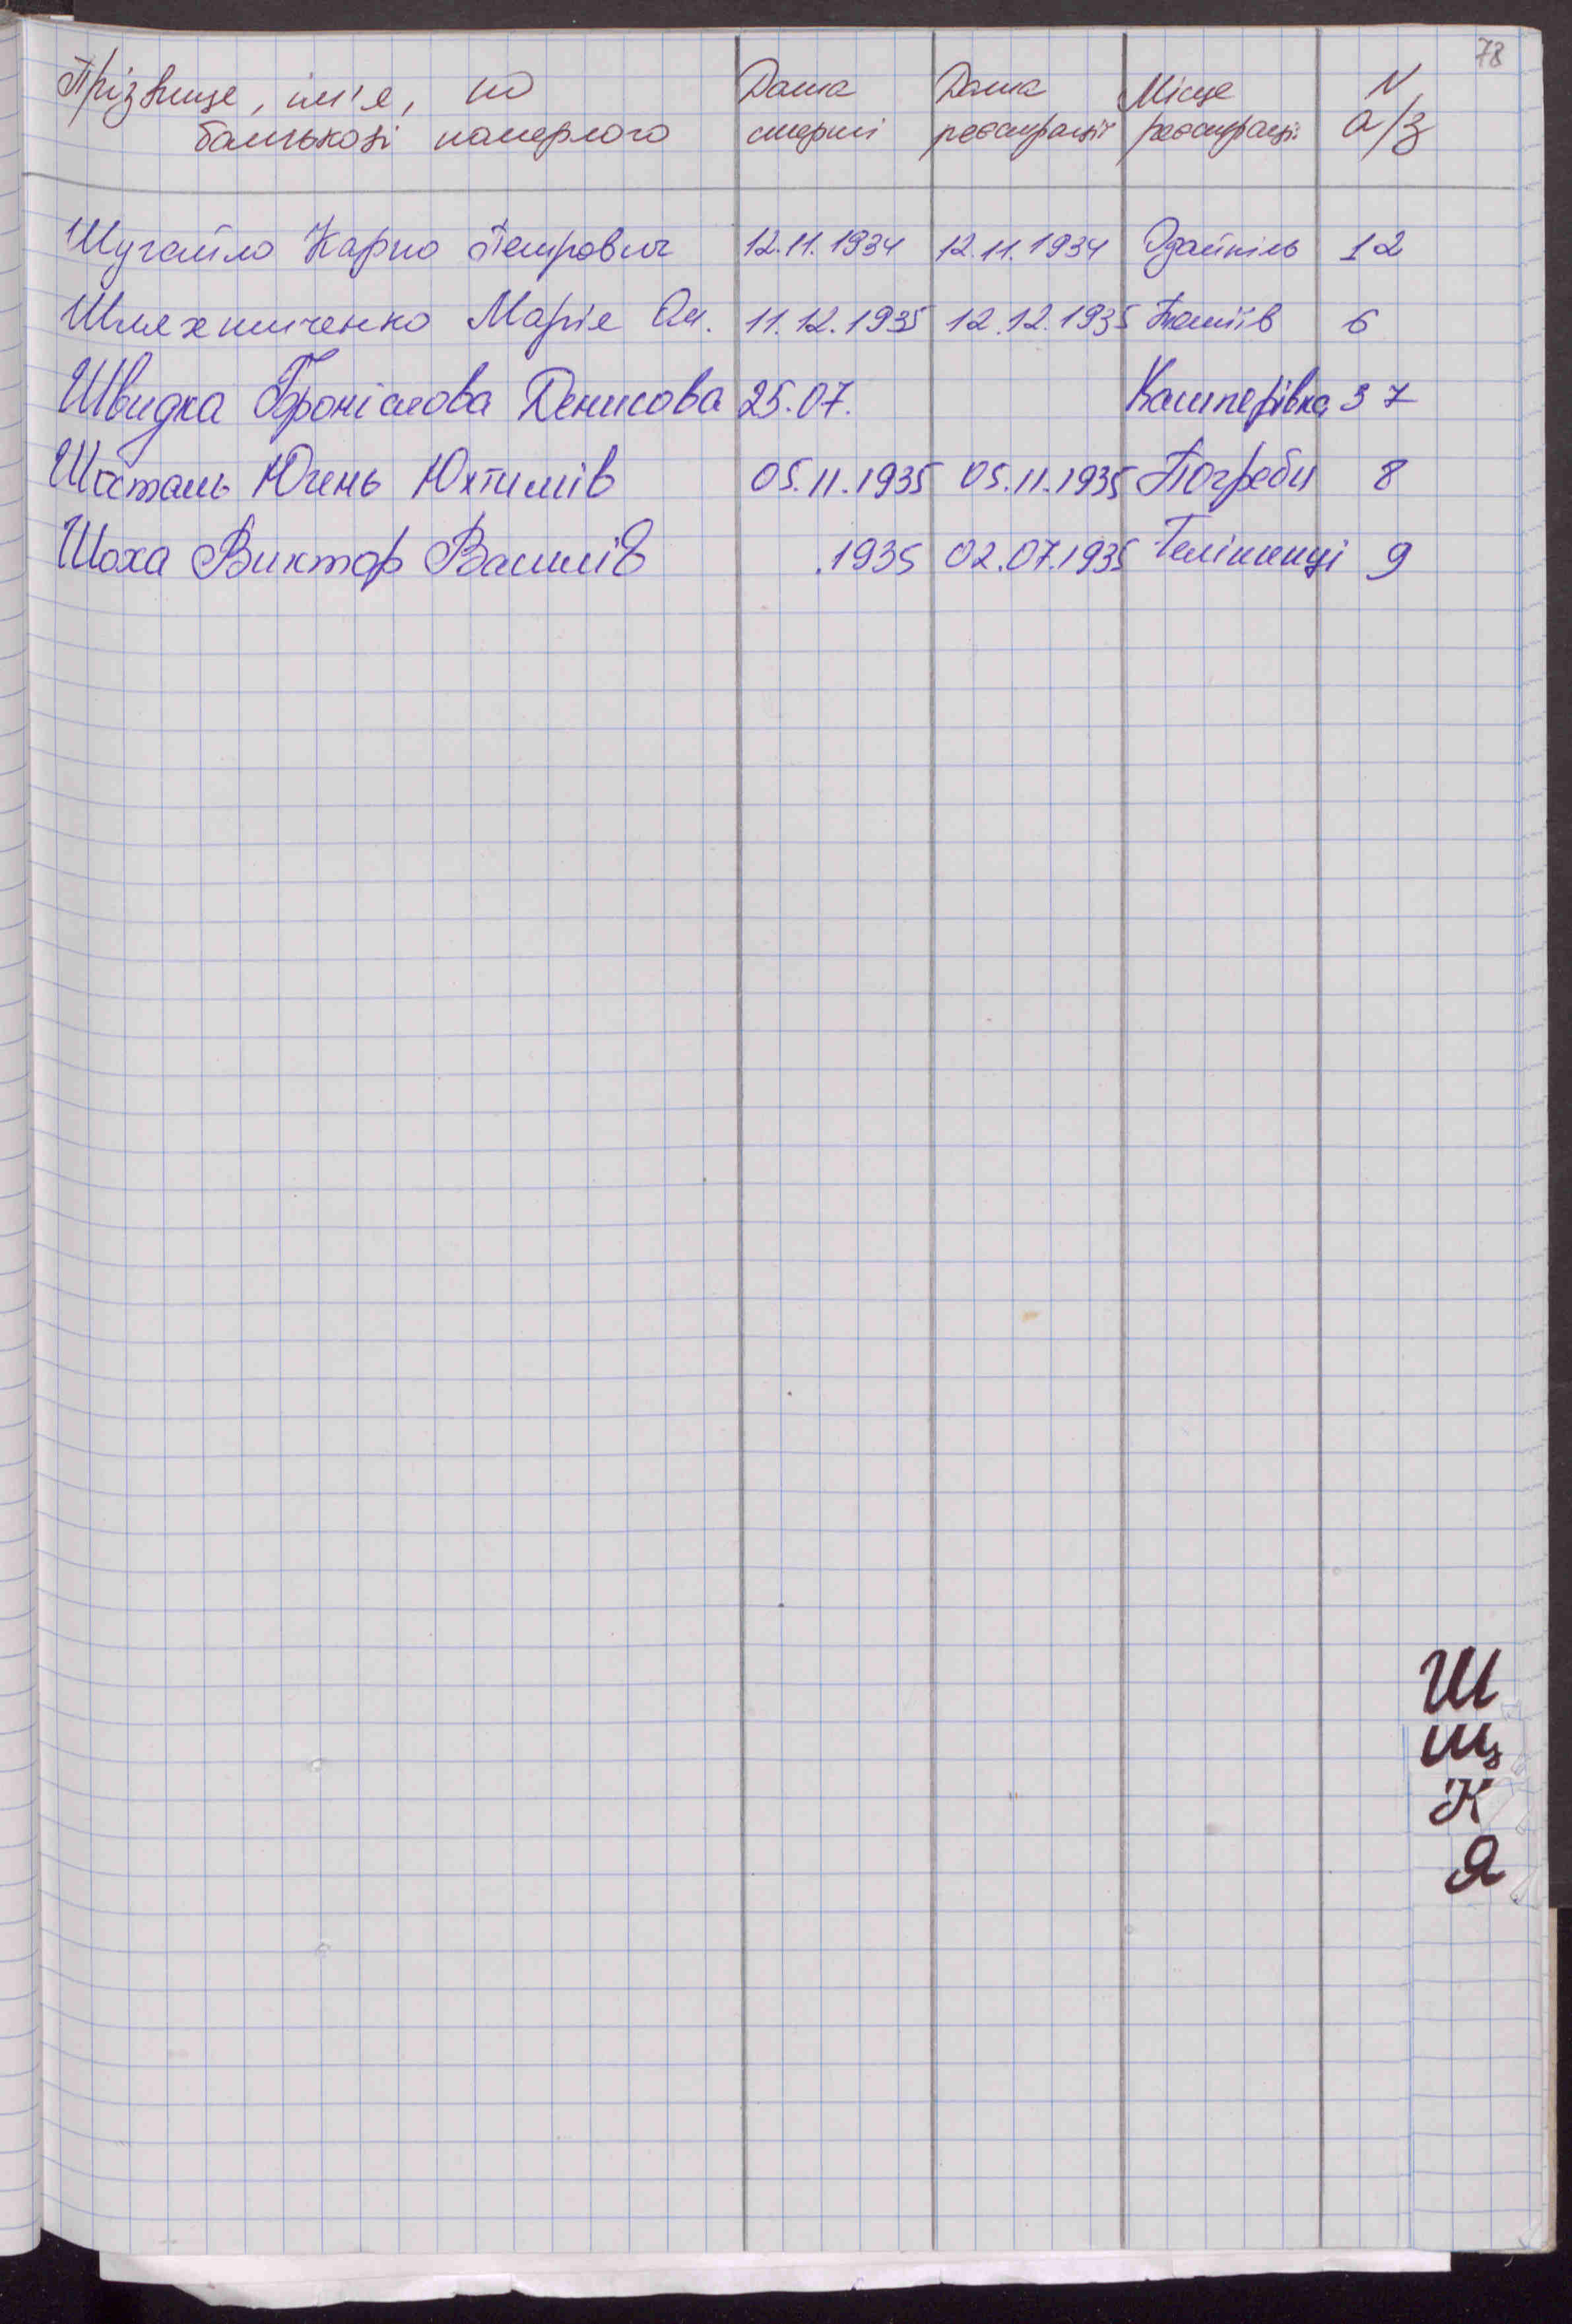 78
Прізвище, ім'я, по Дата Дата Місце N
батькові померлого смерті реєстрації реєстрації а/з
Шугайло Карпо Петрович 12.11.1934 12.11.1934 Одайпіль 12
Шляхтиченко Марія Ол. 11.12.1935 12.12.1935 6
Швидка Броніслова Денисова 25.07. Кашперівка 37
Шесталь Юхимів 05.11.1935 05.11.1935 Погреби 8
Шоха Виктор Василів .1935 02.07.1935 Теліженці 9
Ш
Щ
Я